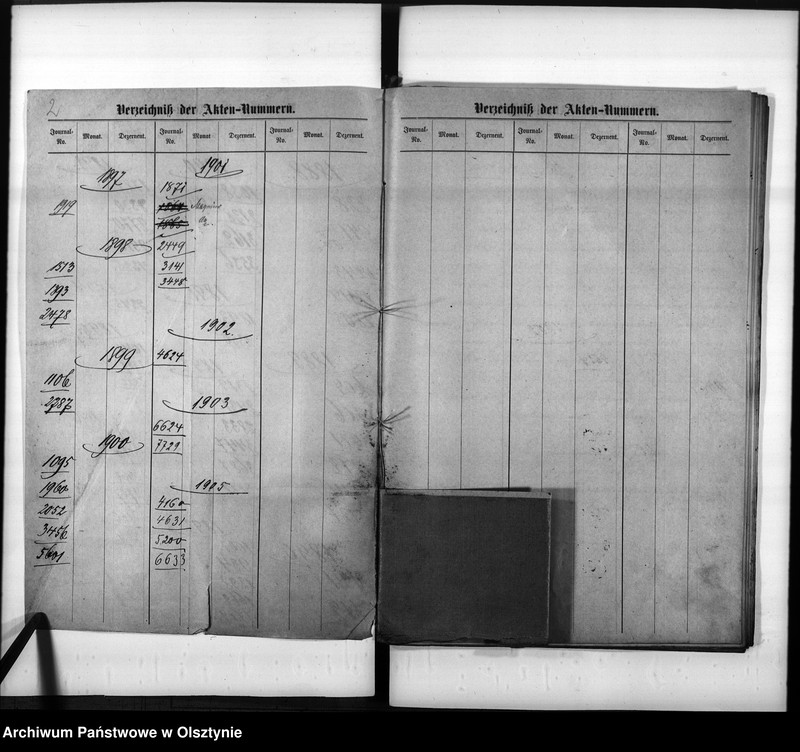 2
Verzeichniß der Akten-Nummern.
Journal-No. Monat. Dezernent. Journal-No. Monat Dezernent. Journal-No. Monat. Dezernent.
1897
1919
1898
1513
1893
2478
1899
1106
2787
1900
1095
1960
2052
3456
5601
1901
1871
1865
2449
3141
3448
1902.
4624
1903
6624
7729
1905
4160
4631
5200
6633
Verzeichniß der Akten-Nummern.
Journal-No. Monat. Dezernent. Journal-No. Monat. Dezernent. Journal-No. Monat. Dezernent.
Archiwum Państwowe w Olsztynie